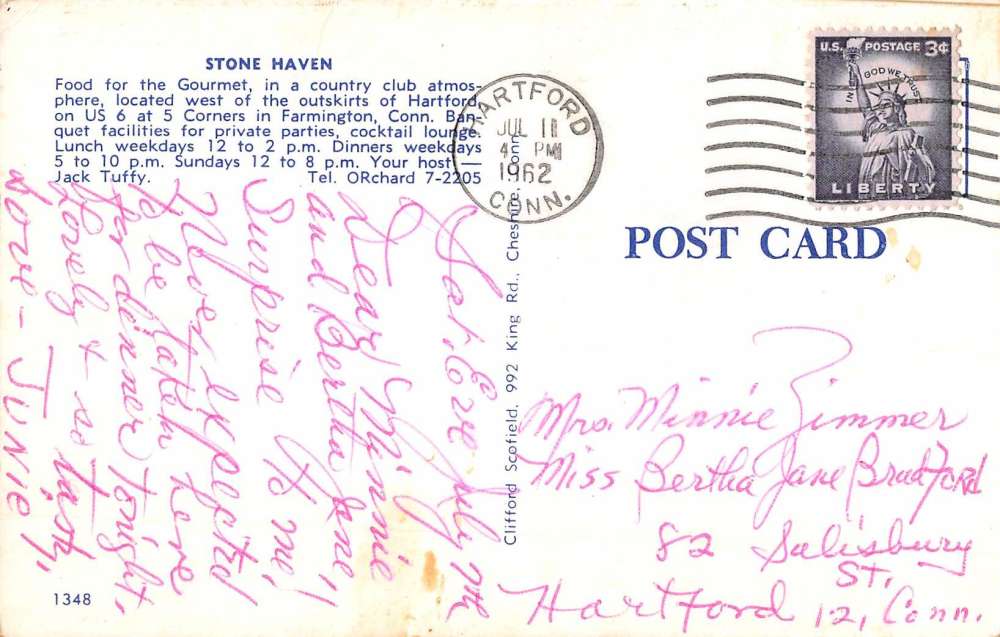 STONE HAVEN
Food for the Gourmet, in a country club atmos-
phere, located west of the outskirts of Hartford
on US 6 at 5 Corners in Farmington, Conn. Ban-
quet facilities for private parties, cocktail lounge.
Lunch weekdays 12 to 2 p.m. Dinners weekdays
5 to 10 p.m. Sundays 12 to 8 p.m. Your host —
Jack Tuffy. Tel. ORchard 7-2205
HARTFORD
JUL 11
4 PM
1962
CONN.
U.S. POSTAGE 3¢
IN GOD WE TRUST
LIBERTY
POST CARD
Sat. Eve July
Dear Minnie
and Bertha Jane,
Surprise to me!
Never expected
to be taken here
for dinner tonight.
Lovely & so tasty,
Love - JUNIE
Clifford Scofield, 992 King Rd., Cheshire, Conn.
Mrs. Minnie Zimmer
Miss Bertha Jane Bradford
82 Salisbury
St.
Hartford 12, Conn.
1348